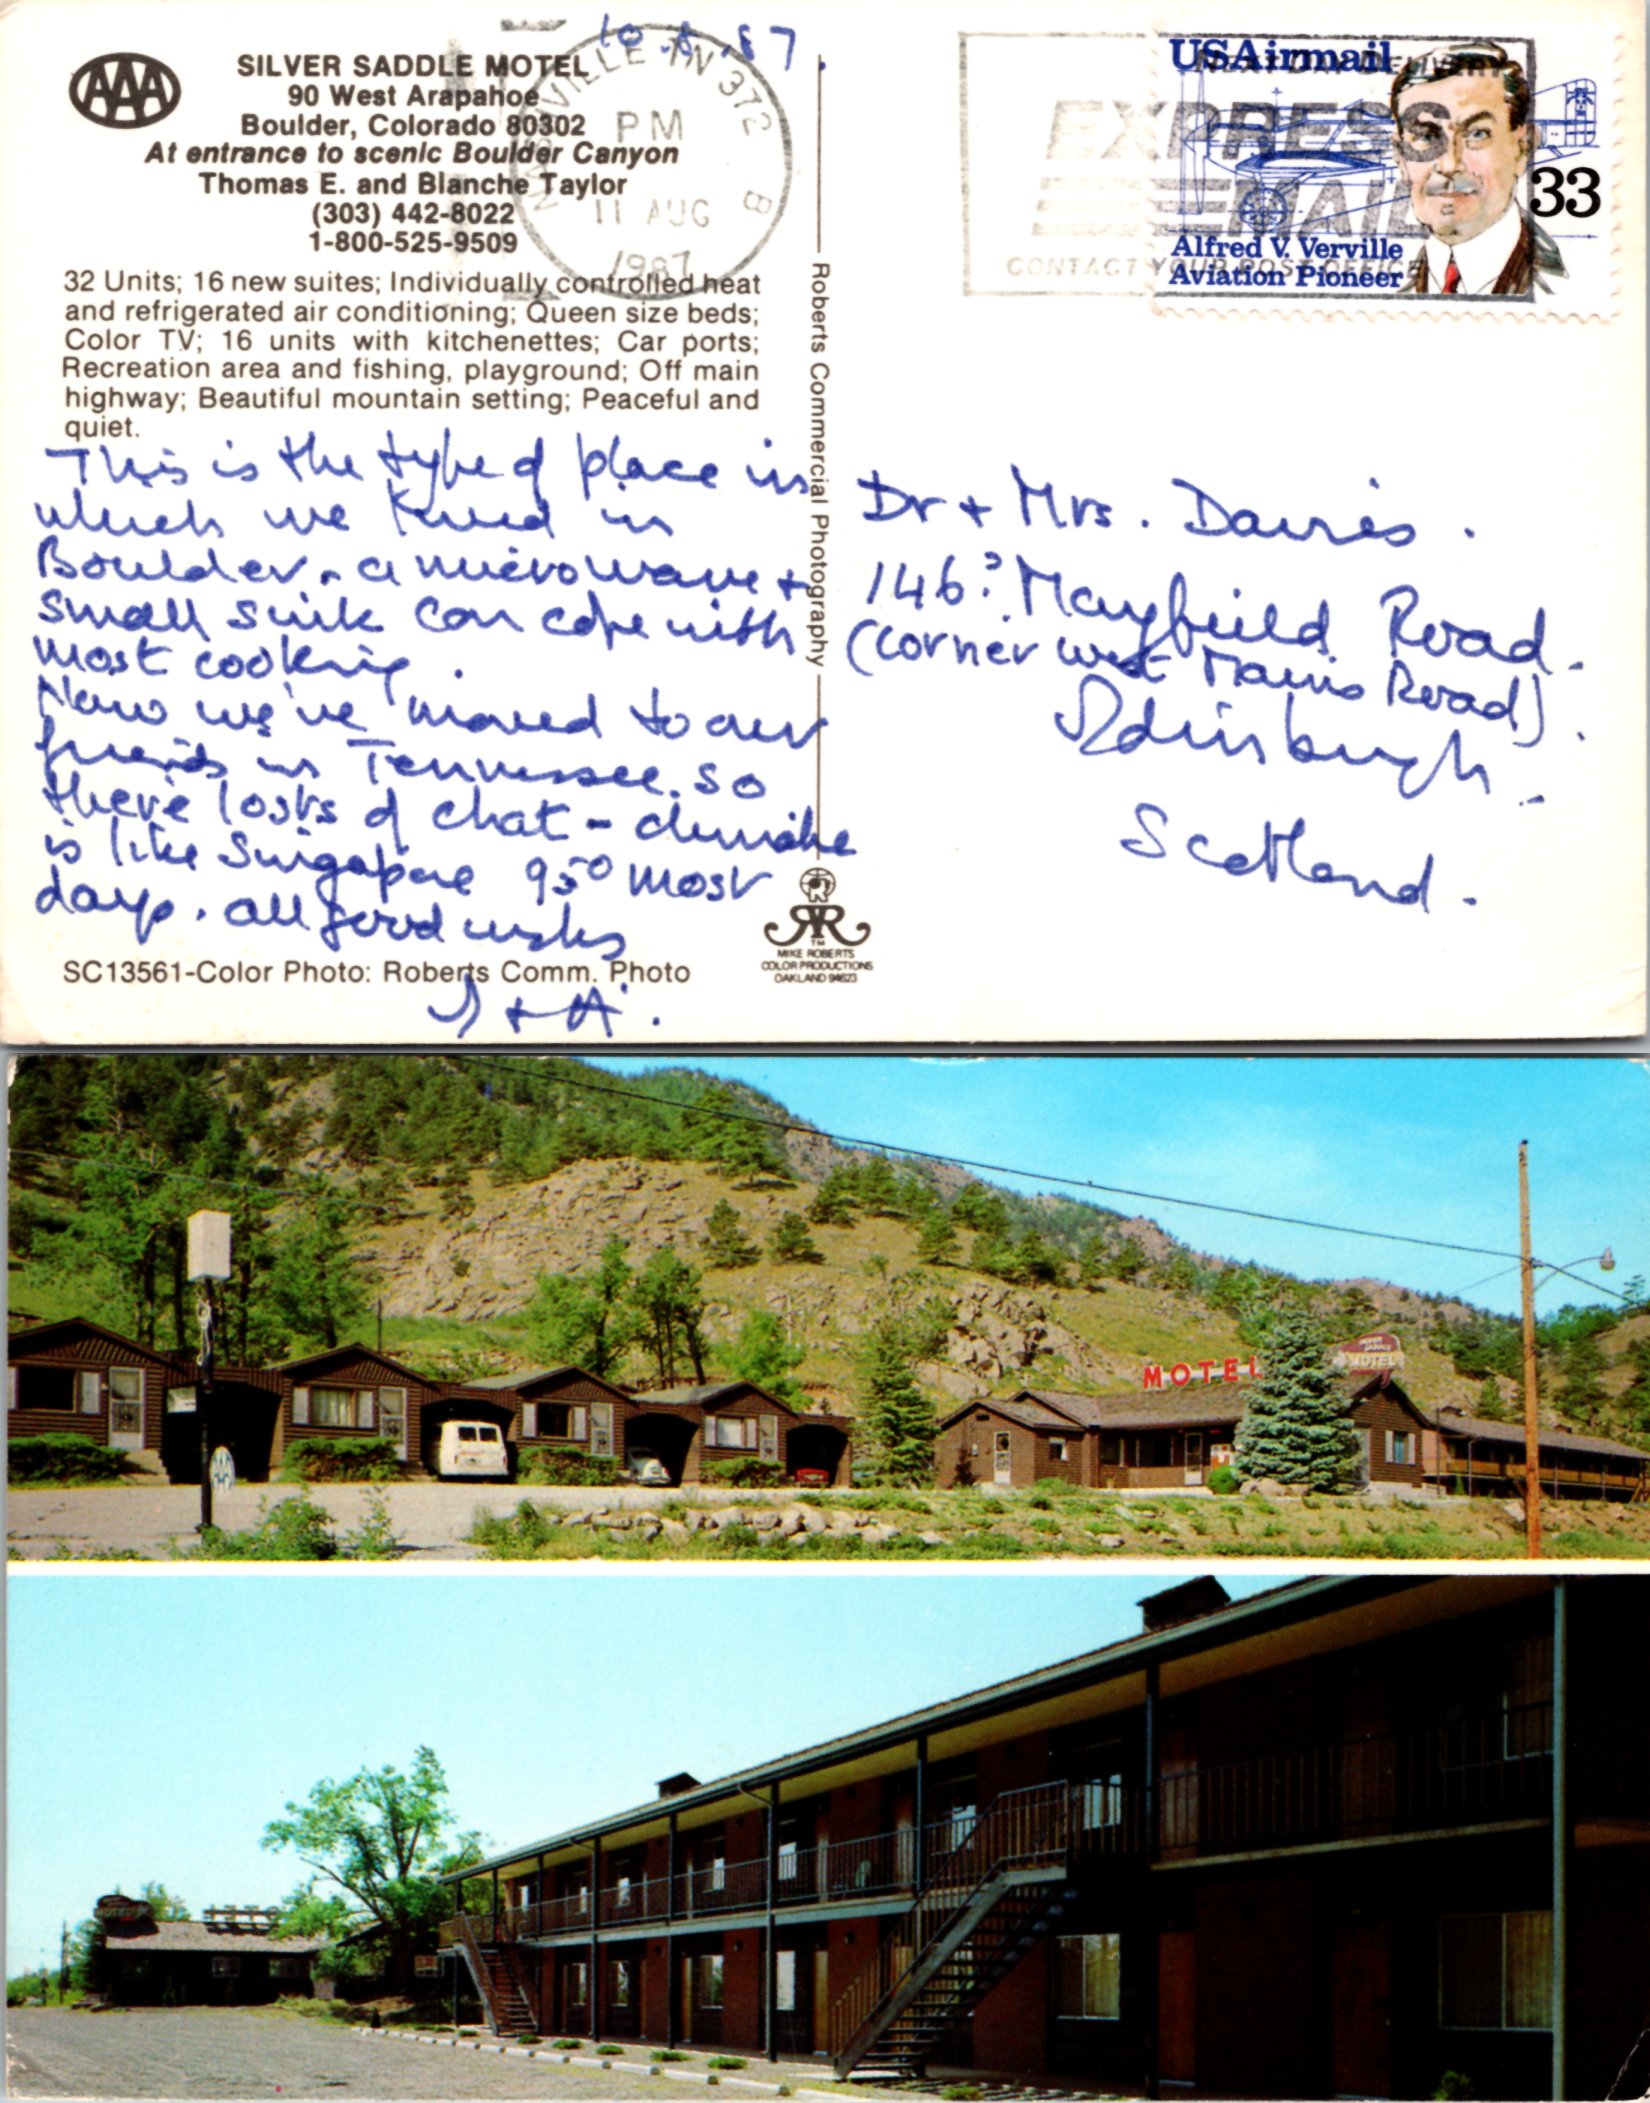 10.8.87.
AAA
SILVER SADDLE MOTEL
90 West Arapahoe
Boulder, Colorado 80302
At entrance to scenic Boulder Canyon
Thomas E. and Blanche Taylor
(303) 442-8022
1-800-525-9509
32 Units; 16 new suites; Individually controlled heat
and refrigerated air conditioning; Queen size beds;
Color TV; 16 units with kitchenettes; Car ports;
Recreation area and fishing, playground; Off main
highway; Beautiful mountain setting; Peaceful and
quiet.
NASHVILLE TN 372
PM
11 AUG
1987
B
This is the type of place in
which we lived in
Boulder. a microwave +
small sink can cope with
most cooking.
Now we've moved to our
friends in Tennessee. So
there lots of chat - climate
is like Singapore 95° most
days. all good wishes
+ A.
SC13561-Color Photo: Roberts Comm. Photo
Roberts Commercial Photography
R
TM
MIKE ROBERTS
COLOR PRODUCTIONS
OAKLAND 94623
NEXT DAY DELIVERY
EXPRESS
MAIL
CONTACT YOUR POST OFFICE
USAirmail
33
Alfred V. Verville
Aviation Pioneer
Dr + Mrs. Davies.
146? Mayfield Road.
(corner west Mains Road).
Edinburgh.
Scotland.
MOTEL
MOTEL